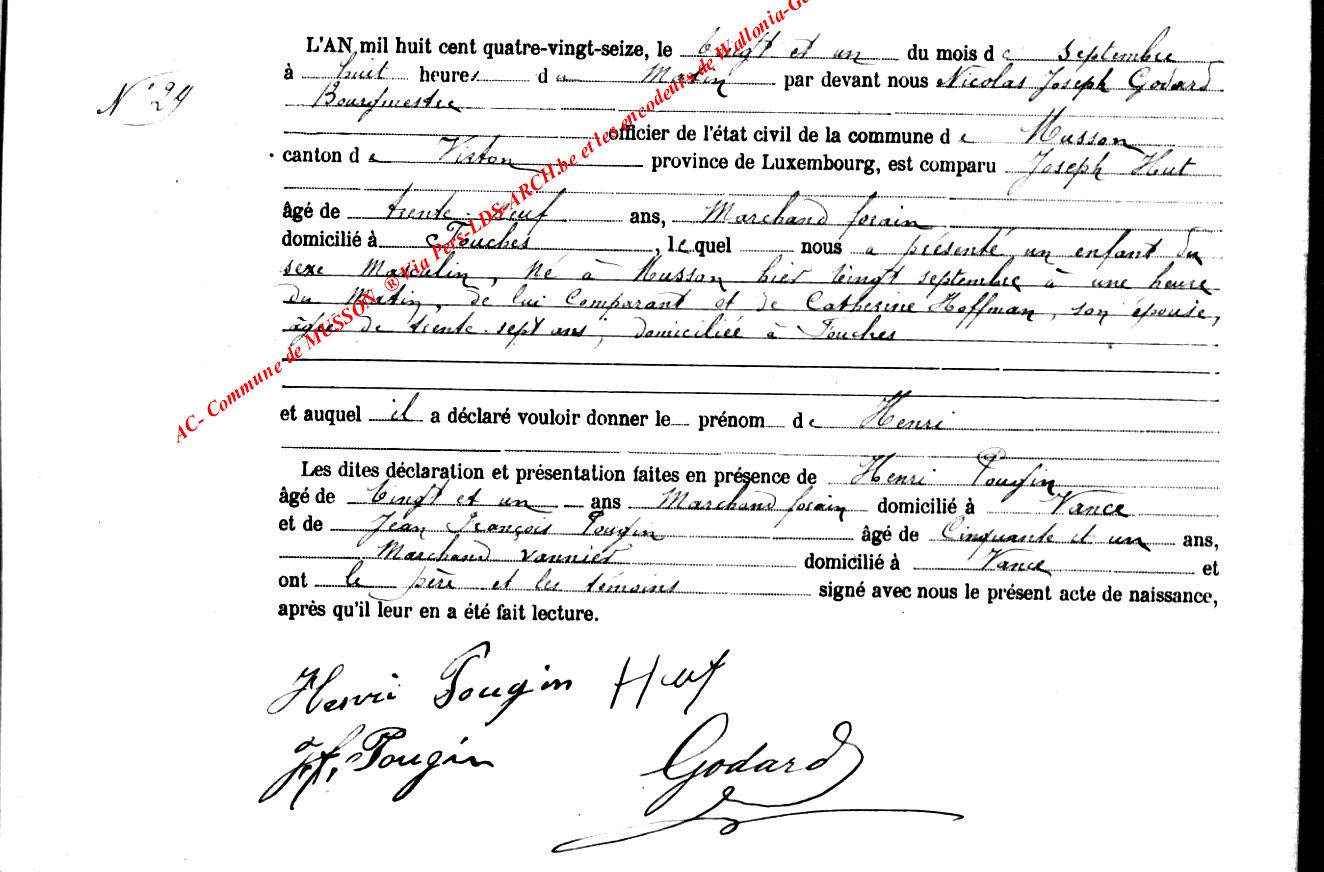 N° 29
L'AN mil huit cent quatre-vingt-seize, le vingt et un du mois de septembre
à huit heures du Matin par devant nous Nicolas Joseph Godard
Bourgmestre
officier de l'état civil de la commune de Musson
canton de Virton province de Luxembourg, est comparu Joseph Hut
âgé de trente-neuf ans, Marchand forain
domicilié à Fouches, lequel nous a présenté un enfant du
sexe Masculin, Né à Musson hier vingt septembre à une heure
du Matin, de lui Comparant et de Catherine Hoffman, son épouse,
âgée de trente-sept ans, domiciliée à Fouches
et auquel il a déclaré vouloir donner le prénom de Henri
Les dites déclaration et présentation faites en présence de Henri Pougin
âgé de vingt et un ans Marchand forain domicilié à Vance
et de Jean François Pougin âgé de Cinquante et un ans,
Marchand vannier domicilié à Vance et
ont le père et les témoins signé avec nous le présent acte de naissance,
après qu'il leur en a été fait lecture.
Henri Pougin Hut
Jf, Pougin Godard
AC- Commune de MUSSON ® Via Pers-LDS-ARCH.be et les encodeurs de Wallonia-Ge